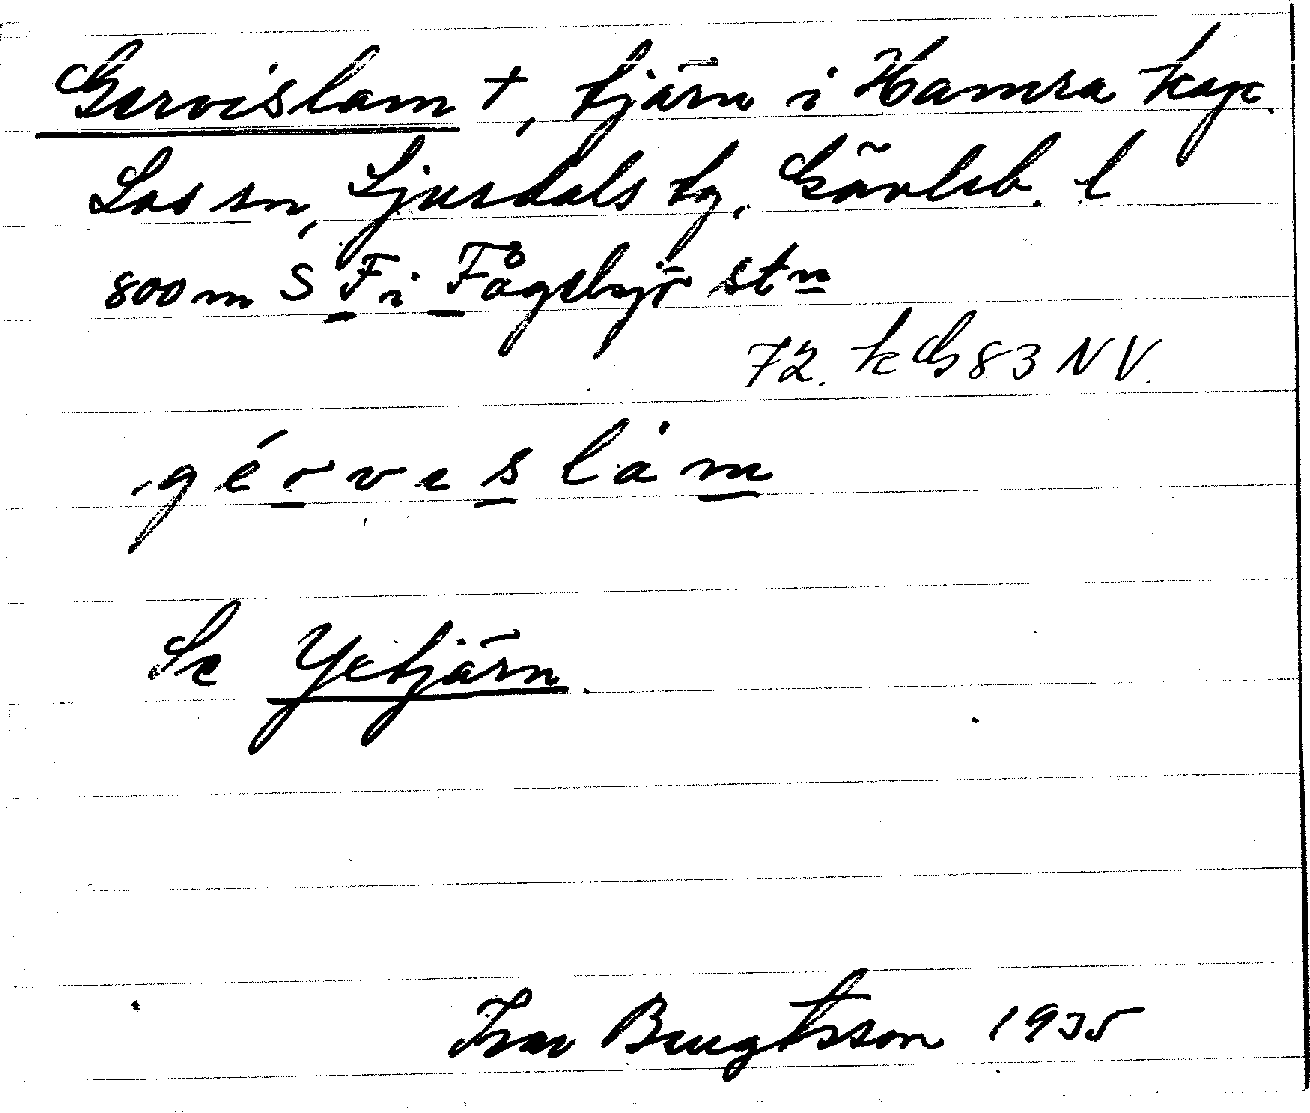 Gervislam +, tjärn i Hamra kap.
Los sn, Ljusdals tg, Gävleb. l
800 m S F i Fågelsjö stn
72. k G 83 NV.
gérveslåm
Se Yetjärn.
Ivar Bengtsson 1935